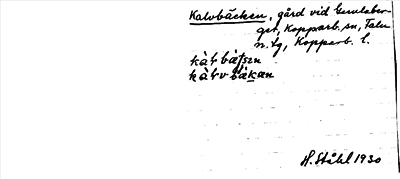 Kalvbäcken, gård vid Gruvlaber-
get, Kopparb. sn, Falu
n. tg, Kopparb. l.
kàɫbä́ʃɛn
kàɫvbä́kan
H. Ståhl 1930